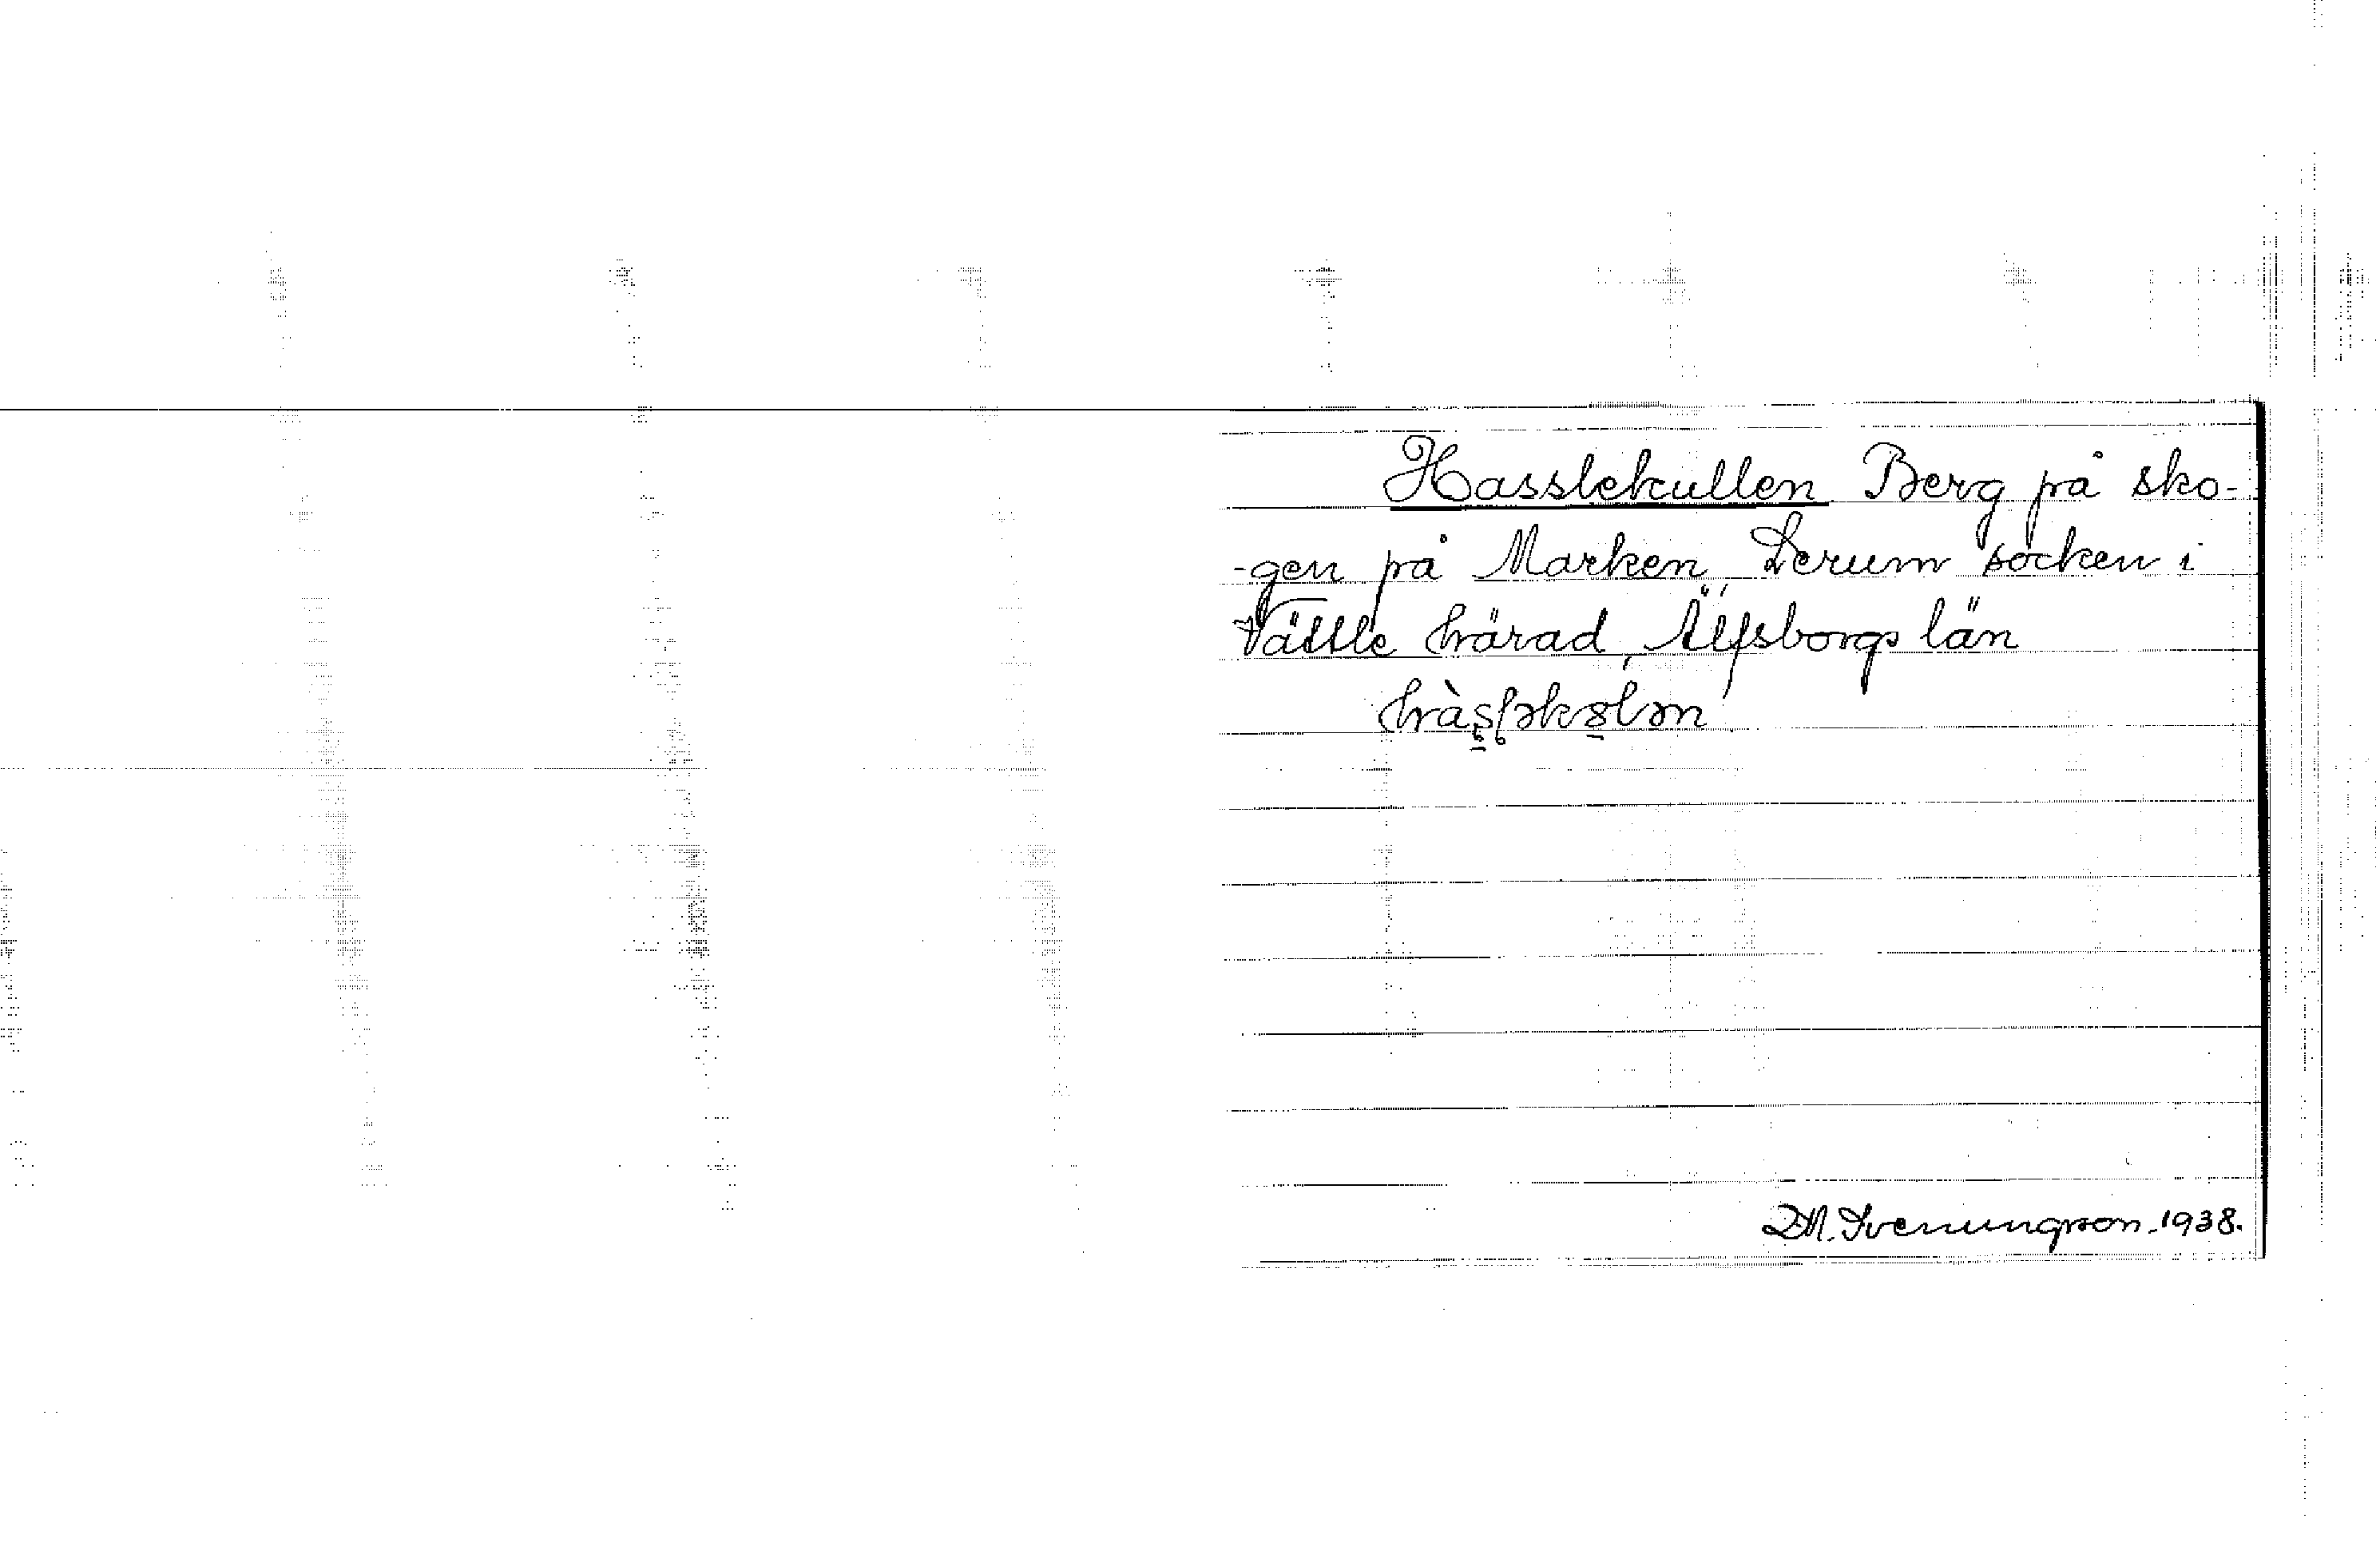 Hasslekullen Berg på sko-
-gen på Marken, Lerum socken i
Vättle härad, Älfsborgs län
D.M. Svenungson. 1938.